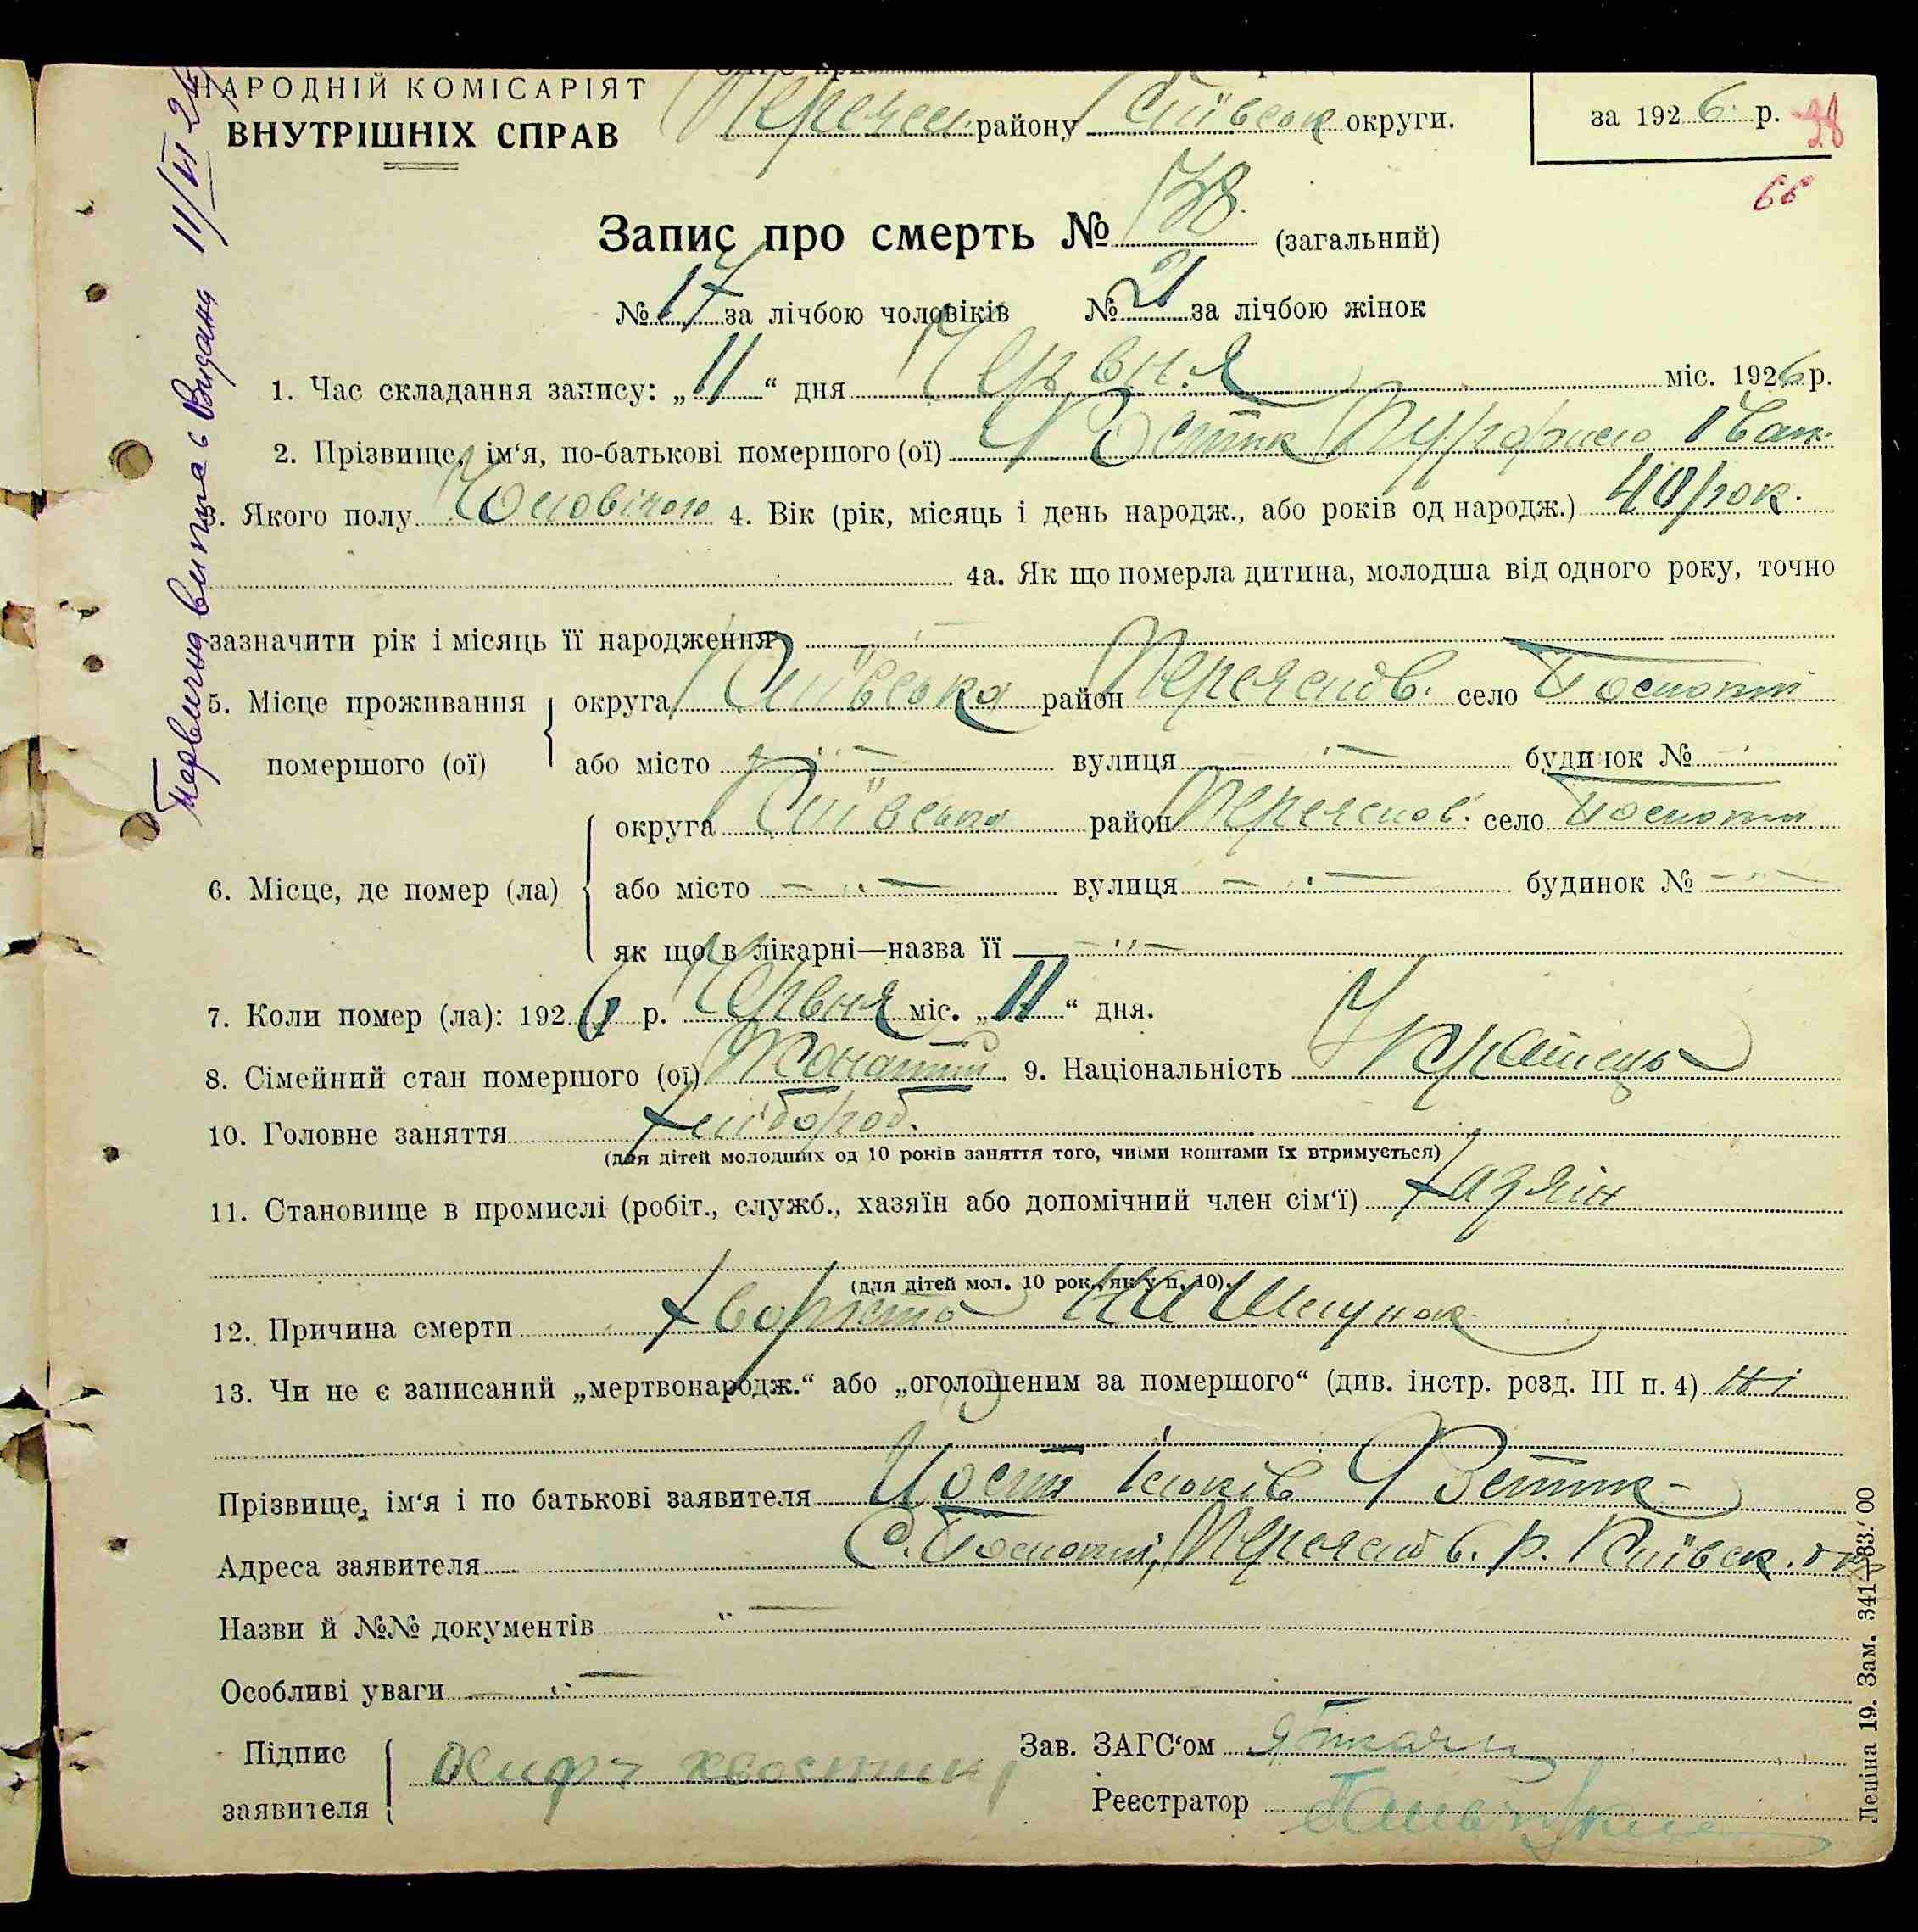 НАРОДНІЙ КОМІСАРІЯТ
ВНУТРІШНІХ СПРАВ
району Київськ округи.
за 1926 р.
38
66
Запис про смерть № 38 (загальний)
№ 17 за лічбою чоловіків № 21 за лічбою жінок
1. Час складання запису: „11“ дня Червня міс. 1926 р.
2. Прізвище, ім‘я, по-батькові помершого (ої) Іван.
3. Якого полу Чоловічого 4. Вік (рік, місяць і день народж., або років од народж.) 40 рок.
4а. Як що померла дитина, молодша від одного року, точно
зазначити рік і місяць її народження
5. Місце проживання помершого (ої)
округа Київська район Переяслов. село
або місто — " — вулиця — " — будинок № — " —
6. Місце, де помер (ла)
округа Київська район Переяслов. село
або місто — " — вулиця — " — будинок № — " —
як що в лікарні—назва її — " —
7. Коли помер (ла): 1926 р. Червня міс. „11“ дня.
8. Сімейний стан помершого (ої) Жонатий 9. Національність Українець
10. Головне заняття Хлібороб.
(для дітей молодших од 10 років заняття того, чиїми коштами їх втримується)
11. Становище в промислі (робіт., служб., хазяїн або допомічний член сім‘ї) Хазяін
(для дітей мол. 10 рок., як у п. 10).
12. Причина смерти Хворість на Шлунок
13. Чи не є записаний „мертвонародж.“ або „оголошеним за помершого“ (див. інстр. розд. III п. 4) Ні
Прізвище, ім‘я і по батькові заявителя
Адреса заявителя С. Переяслов. р. Київськ. ок
Назви й №№ документів " —
Особливі уваги — " —
Підпис заявителя Осиф хвостик
Зав. ЗАГС‘ом
Реєстратор
Леніна 19. Зам. 341—83.'00
Видана 11/VI 26